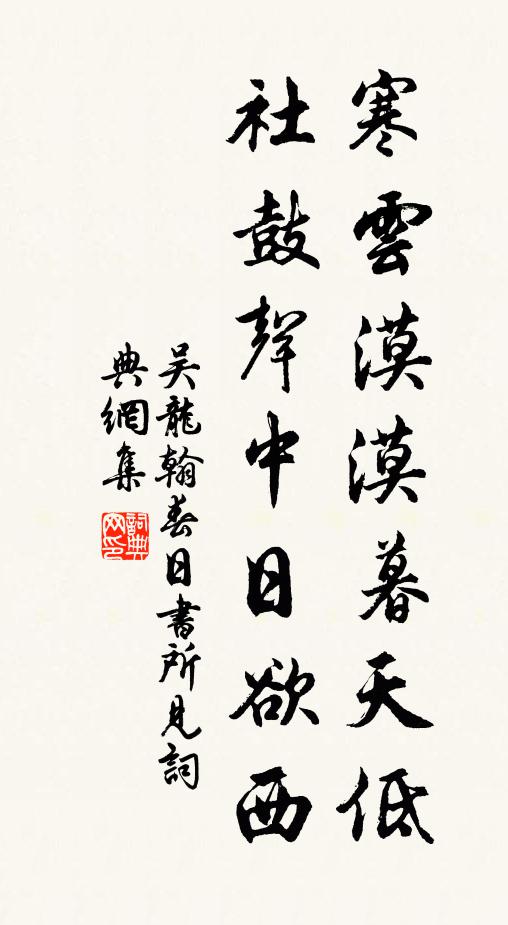 寒雲漠漠暮天低
社鼓聲中日欲西
吴龍翰春日書所見詞
典網集
詞典
网印